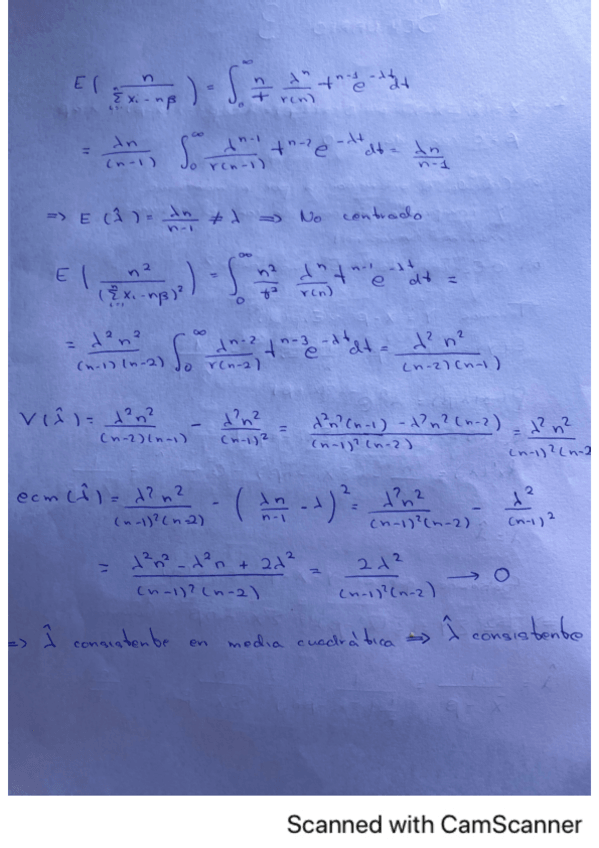 E( n / (∑_{i=1}^{n} xᵢ - nβ) ) = ∫₀^∞ n/t λⁿ/Γ(n) t^{n-1} e^{-λt} dt
= λn/(n-1) ∫₀^∞ λ^{n-1}/Γ(n-1) t^{n-2} e^{-λt} dt = λn/(n-1)
=> E(λ̂) = λn/(n-1) ≠ λ => No centrado
E( n²/(∑_{i=1}^{n} xᵢ - nβ)² ) = ∫₀^∞ n²/t² λⁿ/Γ(n) t^{n-1} e^{-λt} dt =
= λ²n²/((n-1)(n-2)) ∫₀^∞ λ^{n-2}/Γ(n-2) t^{n-3} e^{-λt} dt = λ²n²/((n-2)(n-1))
V(λ̂) = λ²n²/((n-2)(n-1)) - λ²n²/(n-1)² = (λ²n²(n-1) - λ²n²(n-2))/((n-1)²(n-2)) = λ²n²/((n-1)²(n-2
ecm(λ̂) = λ²n²/((n-1)²(n-2)) - (λn/(n-1) - λ)² = λ²n²/((n-1)²(n-2)) - λ²/(n-1)²
= (λ²n² - λ²n + 2λ²)/((n-1)²(n-2)) = 2λ²/((n-1)²(n-2)) → 0
=> λ̂ consistente en media cuadrática => λ̂ consistente
Scanned with CamScanner